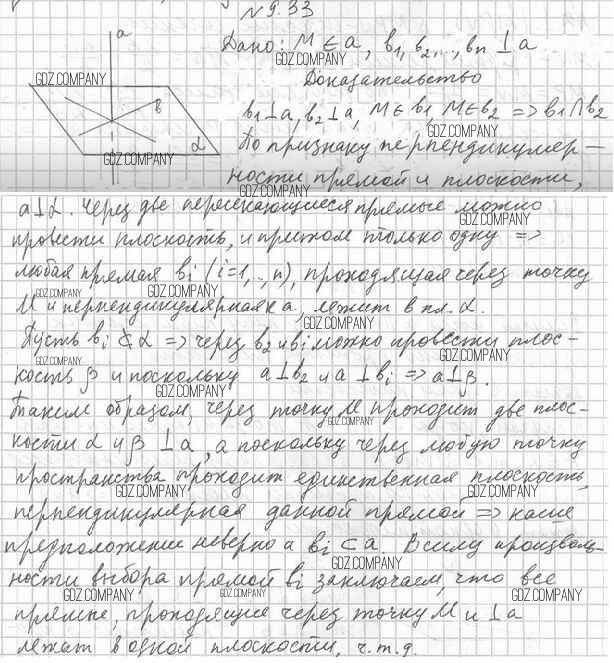 №9.33
a
Дано: M ∈ a, b₁, b₂,..., bn ⊥ a
GDZ.COMPANY
GDZ.COMPANY
Доказательство
в
b₁⊥a, b₂⊥a, M∈b₁, M∈b₂ => b₁∩b₂
GDZ.COMPANY
α
По признаку перпендикуляр-
GDZ.COMPANY
ности прямой и плоскости,
GDZ.COMPANY
a⊥α. Через две пересекающиеся прямые можно
GDZ.COMPANY
GDZ.COMPANY
провести плоскость, и притом только одну =>
любая прямая bi (i=1,..,n), проходящая через точку
GDZ.COMPANY
GDZ.COMPANY
M и перпендикулярная к a, лежит в пл. α.
GDZ.COMPANY
Пусть bi ⊄ α => через b₂ и bi можно провести плос-
GDZ.COMPANY
GDZ.COMPANY
кость β и поскольку a⊥b₂ и a⊥bi => a⊥β.
GDZ.COMPANY
Таким образом, через точку M проходит две плос-
GDZ.COMPANY
кости α и β ⊥a, а поскольку через любую точку
GDZ.COMPANY
пространства проходит единственная плоскость,
GDZ.COMPANY
GDZ.COMPANY
перпендикулярная данной прямой => наше
предположение неверно и bi ⊂ α. В силу произволь-
GDZ.COMPANY
ности выбора прямой bi заключаем, что все
GDZ.COMPANY
GDZ.COMPANY
GDZ.COMPANY
прямые, проходящие через точку M и ⊥a
лежат в одной плоскости, ч.т.д.